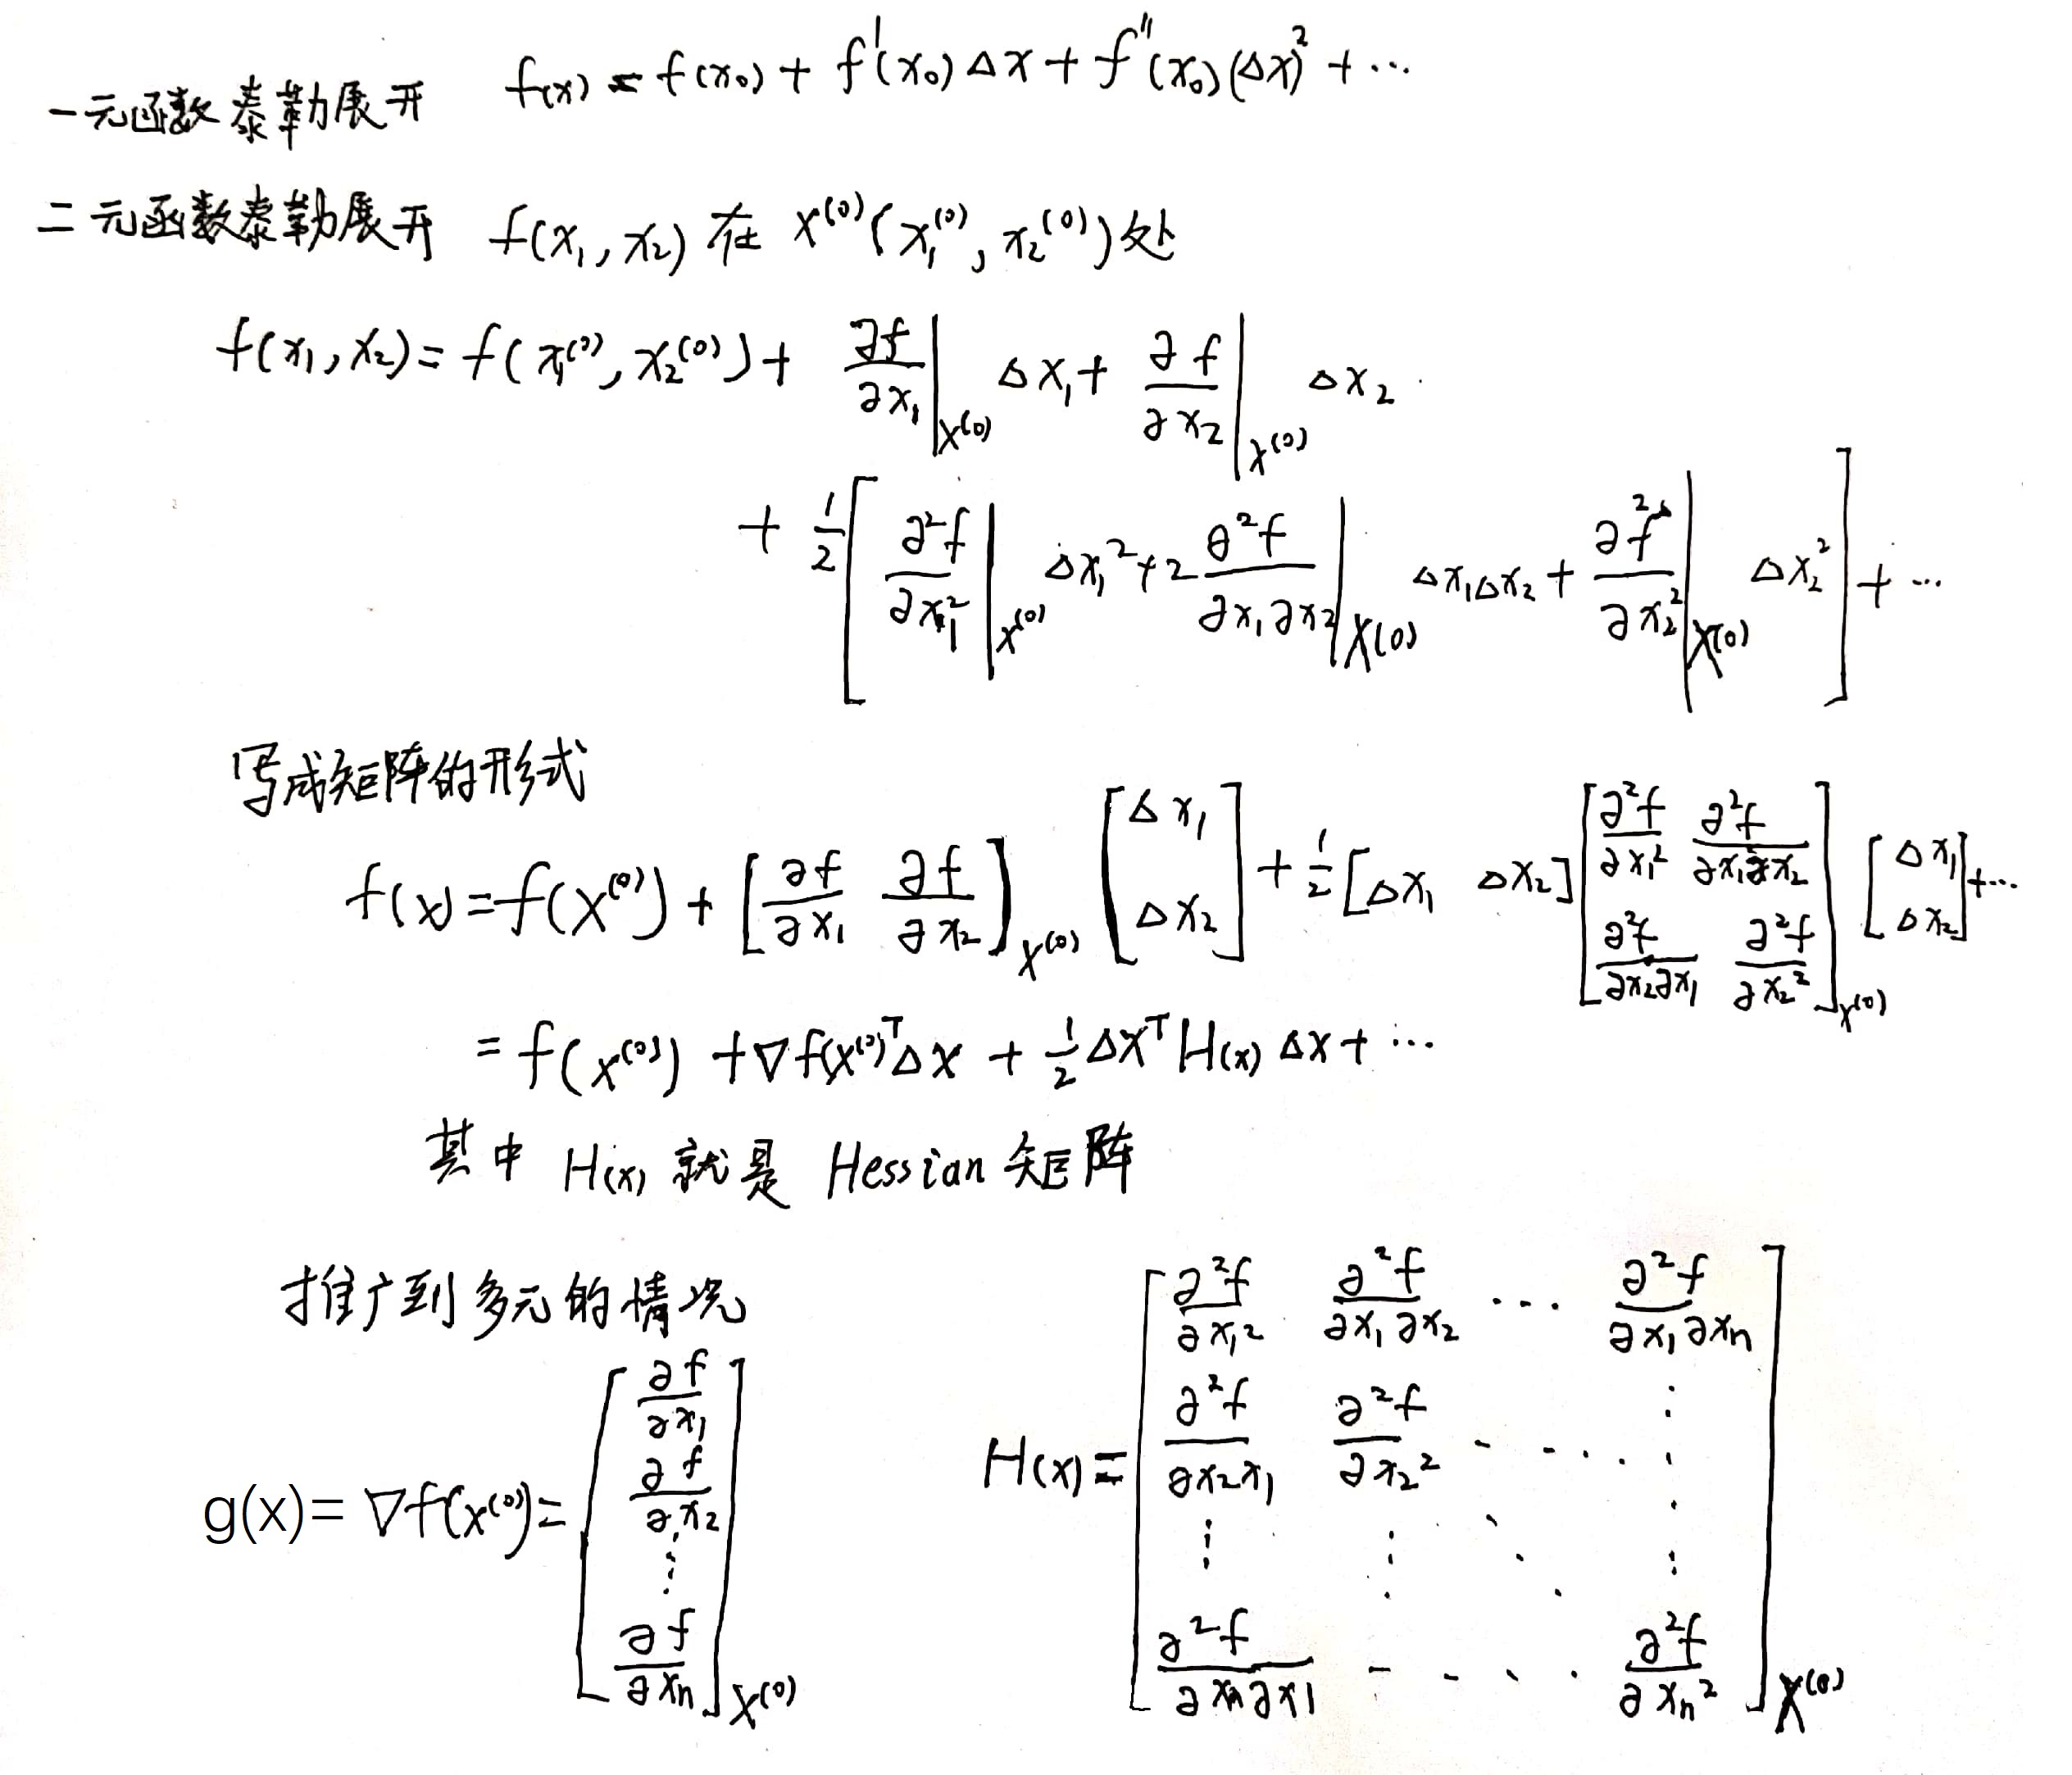 一元函数泰勒展开 f(x) = f(x₀) + f'(x₀)Δx + f''(x₀)(Δx)² + ⋯
二元函数泰勒展开 f(x₁, x₂) 在 X⁽⁰⁾(x₁⁽⁰⁾, x₂⁽⁰⁾)处
f(x₁, x₂) = f(x₁⁽⁰⁾, x₂⁽⁰⁾) + ∂f/∂x₁|X⁽⁰⁾ Δx₁ + ∂f/∂x₂|X⁽⁰⁾ Δx₂
+ 1/2 [ ∂²f/∂x₁²|X⁽⁰⁾ Δx₁² + 2 ∂²f/∂x₁∂x₂|X⁽⁰⁾ Δx₁Δx₂ + ∂²f/∂x₂²|X⁽⁰⁾ Δx₂² ] + ⋯
写成矩阵的形式
f(x) = f(X⁽⁰⁾) + [∂f/∂x₁ ∂f/∂x₂]X⁽⁰⁾ [Δx₁ ; Δx₂] + 1/2 [Δx₁ Δx₂] [∂²f/∂x₁² ∂²f/∂x₁∂x₂ ; ∂²f/∂x₂∂x₁ ∂²f/∂x₂²]X⁽⁰⁾ [Δx₁ ; Δx₂] + ⋯
= f(X⁽⁰⁾) + ∇f(X⁽⁰⁾)ᵀΔX + 1/2 ΔXᵀ H(x) ΔX + ⋯
其中 H(x) 就是 Hessian 矩阵
推广到多元的情况
g(x) = ∇f(X⁽⁰⁾) = [∂f/∂x₁ ; ∂f/∂x₂ ; ⋮ ; ∂f/∂xₙ]X⁽⁰⁾
H(x) = [∂²f/∂x₁² ∂²f/∂x₁∂x₂ ⋯ ∂²f/∂x₁∂xₙ ; ∂²f/∂x₂x₁ ∂²f/∂x₂² ⋯ ⋮ ; ⋮ ⋮ ⋱ ⋮ ; ∂²f/∂xₙ∂x1 ⋯ ∂²f/∂xₙ²]X⁽⁰⁾